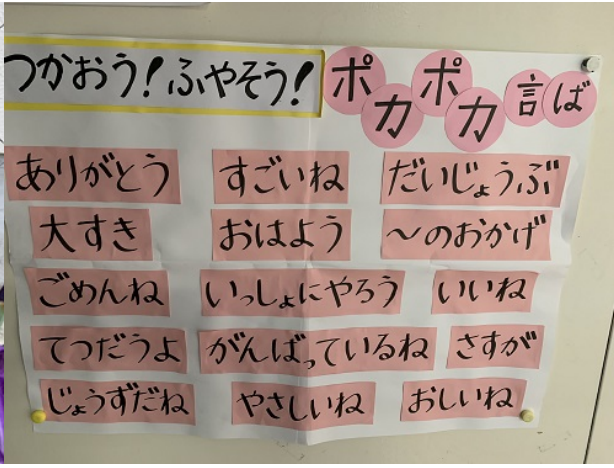 つかおう！ふやそう！ポカポカ言ば
ありがとう すごいね だいじょうぶ
大すき おはよう ～のおかげ
ごめんね いっしょにやろう いいね
てつだうよ がんばっているね さすが
じょうずだね やさしいね おしいね